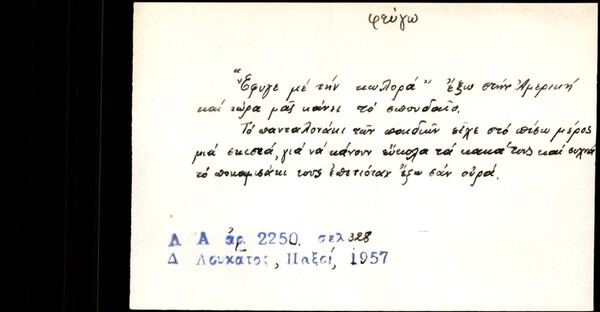 φεύγω
"Ἔφυγε μέ τήν κωλορά" ἔξω στήν Ἀμερική
καί τώρα μᾶς κάνει τό σπουδαῖο.
Τό πανταλονάκι τῶν παιδιῶν εἶχε στό πίσω μέρος
μιά σκιστιά, γιά νά κάνουν εὔκολα τά κακά τους καί συχνά
τό ποκαμισάκι τους ἐπετιόταν ἔξω σάν οὐρά.
Λ Α ἀρ. 2250. σελ 328
Δ Λουκᾶτος, Παξοί, 1957